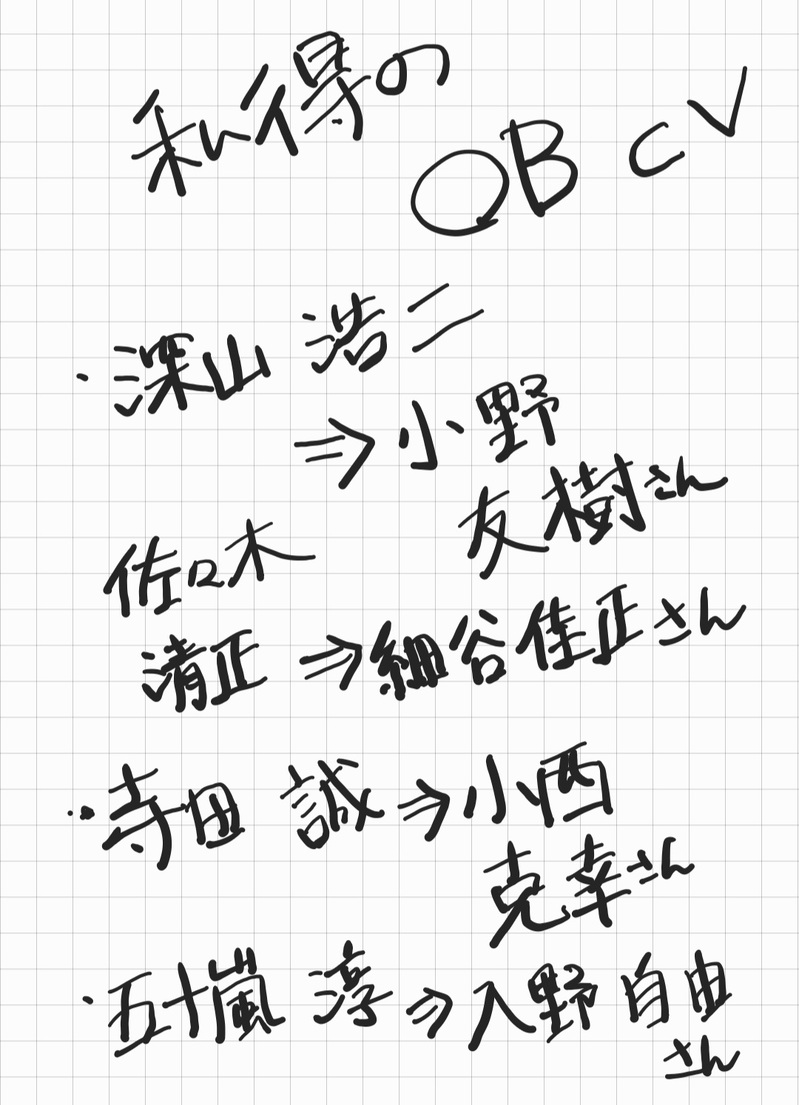 私得の
OB CV
・深山 浩二
⇒小野
友樹さん
佐々木
清正⇒細谷佳正さん
・寺田 誠⇒小西
克幸さん
・五十嵐 淳⇒入野自由
さん